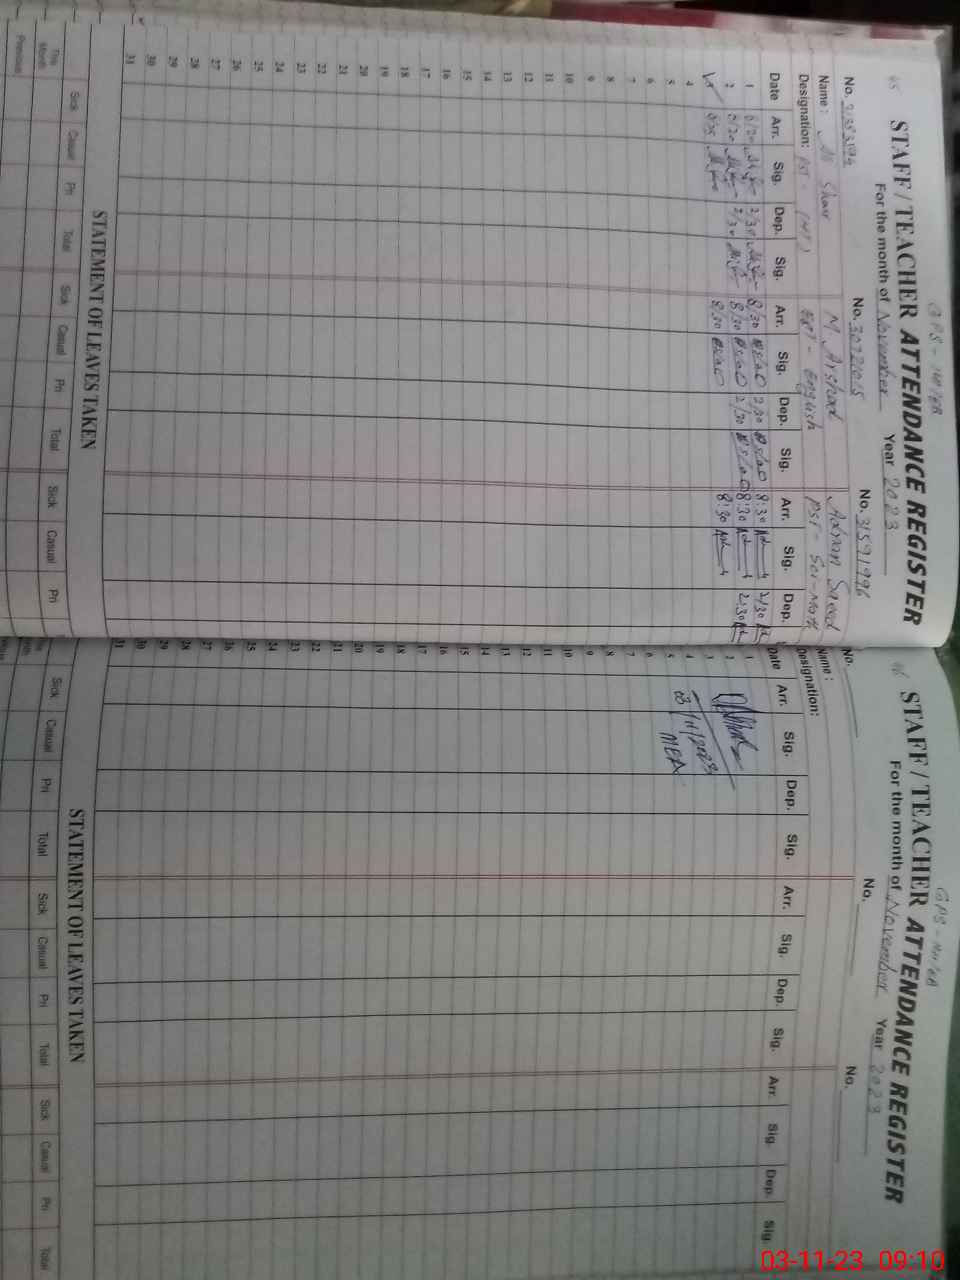 65
GPS - 141/EB
STAFF / TEACHER ATTENDANCE REGISTER
For the month of November Year 2023
No. No. 30721015 No. 31591996
Name : M. Arshad Adnan Saeed
Designation: PST - EST - English PST - Sci-Math
Date Arr. Sig. Dep. Sig. Arr. Sig. Dep. Sig. Arr. Sig. Dep.
1 2/30 8/30 2/30 8:30 2/30
2 8/30 2/30 8:30 2:30
8/30 8:30
4
5
6
7
8
9
10
11
12
13
14
15
16
17
18
19
20
21
22
23
24
25
26
27
28
29
30
31
STATEMENT OF LEAVES TAKEN
Sick Casual Pri Total Sick Casual Pri Total Sick Casual Pri
This Month
Previous
66
GPS - 141/EB
STAFF / TEACHER ATTENDANCE REGISTER
For the month of November Year 2023
No. No. No.
Name :
Designation:
Date Arr. Sig. Dep. Sig. Arr. Sig. Dep. Sig. Arr. Sig. Dep. Sig.
1
2
3
4 03/11/2023
5 MEA
6
7
8
9
10
11
12
13
14
15
16
17
18
19
20
21
22
23
24
25
26
27
28
29
30
31
STATEMENT OF LEAVES TAKEN
Sick Casual Pri Total Sick Casual Pri Total Sick Casual Pri Total
03-11-23 09:10